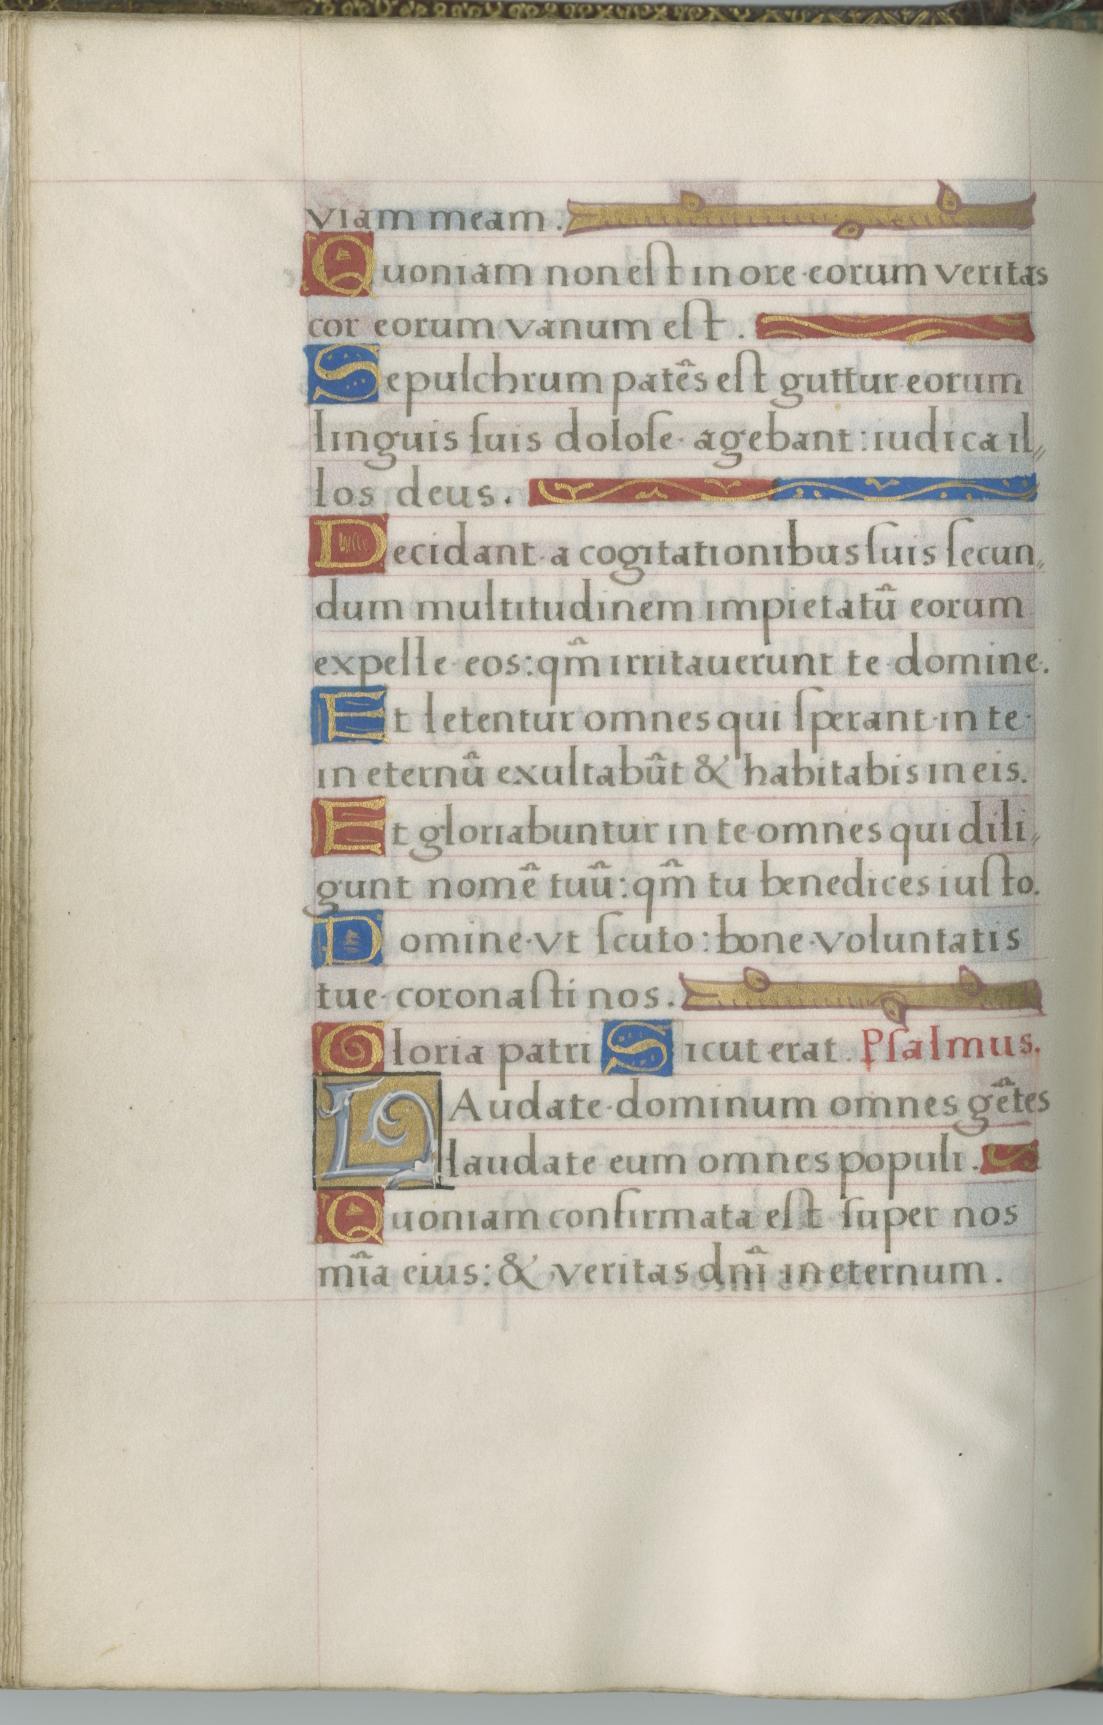 viam meam.
Quoniam non eſt in ore eorum veritas
cor eorum vanum eſt.
Sepulchrum patẽs eſt guttur eorum
linguis ſuis doloſe agebant: iudica il„
los deus.
Decidant a cogitationibus ſuis ſecun„
dum multitudinem impietatũ eorum
expelle eos: qm̃ irritauerunt te domine.
Et letentur omnes qui ſperant in te
in eternũ exultabũt & habitabis in eis.
Et gloriabuntur in te omnes qui dili„
gunt nomẽ tuũ: qm̃ tu benedices iuſto.
Domine vt ſcuto: bone voluntatis
tue coronaſti nos.
Gloria patri Sicut erat. Pſalmus.
LAudate dominum omnes gẽtes
laudate eum omnes populi.
Quoniam confirmata eſt ſuper nos
mĩa eius: & veritas dnĩ in eternum.